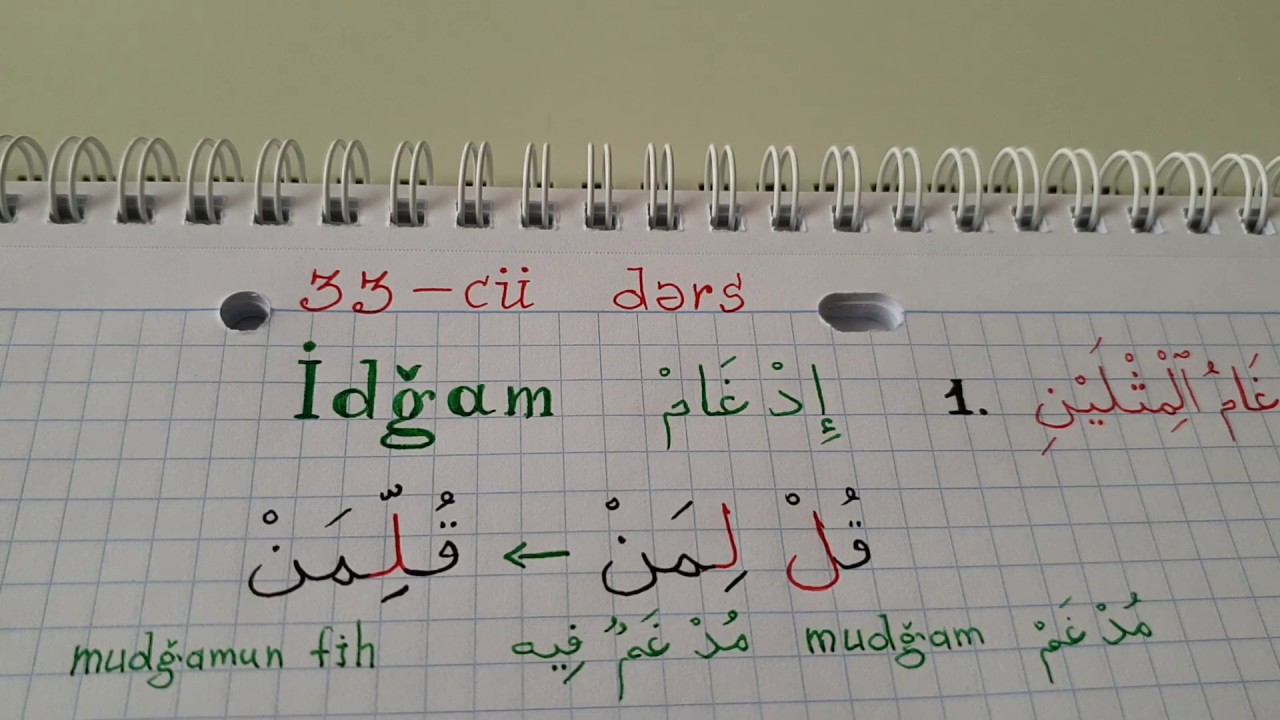 33-cü dərs
İdğam إِدْغَامْ 1. غَامُ ٱلْمِثْلَيْنِ
قُلْ لِمَنْ ← قُلِّمَنْ
mudğam مُدْغَمْ mudğamun fih مُدْغَمٌ فِيهِ